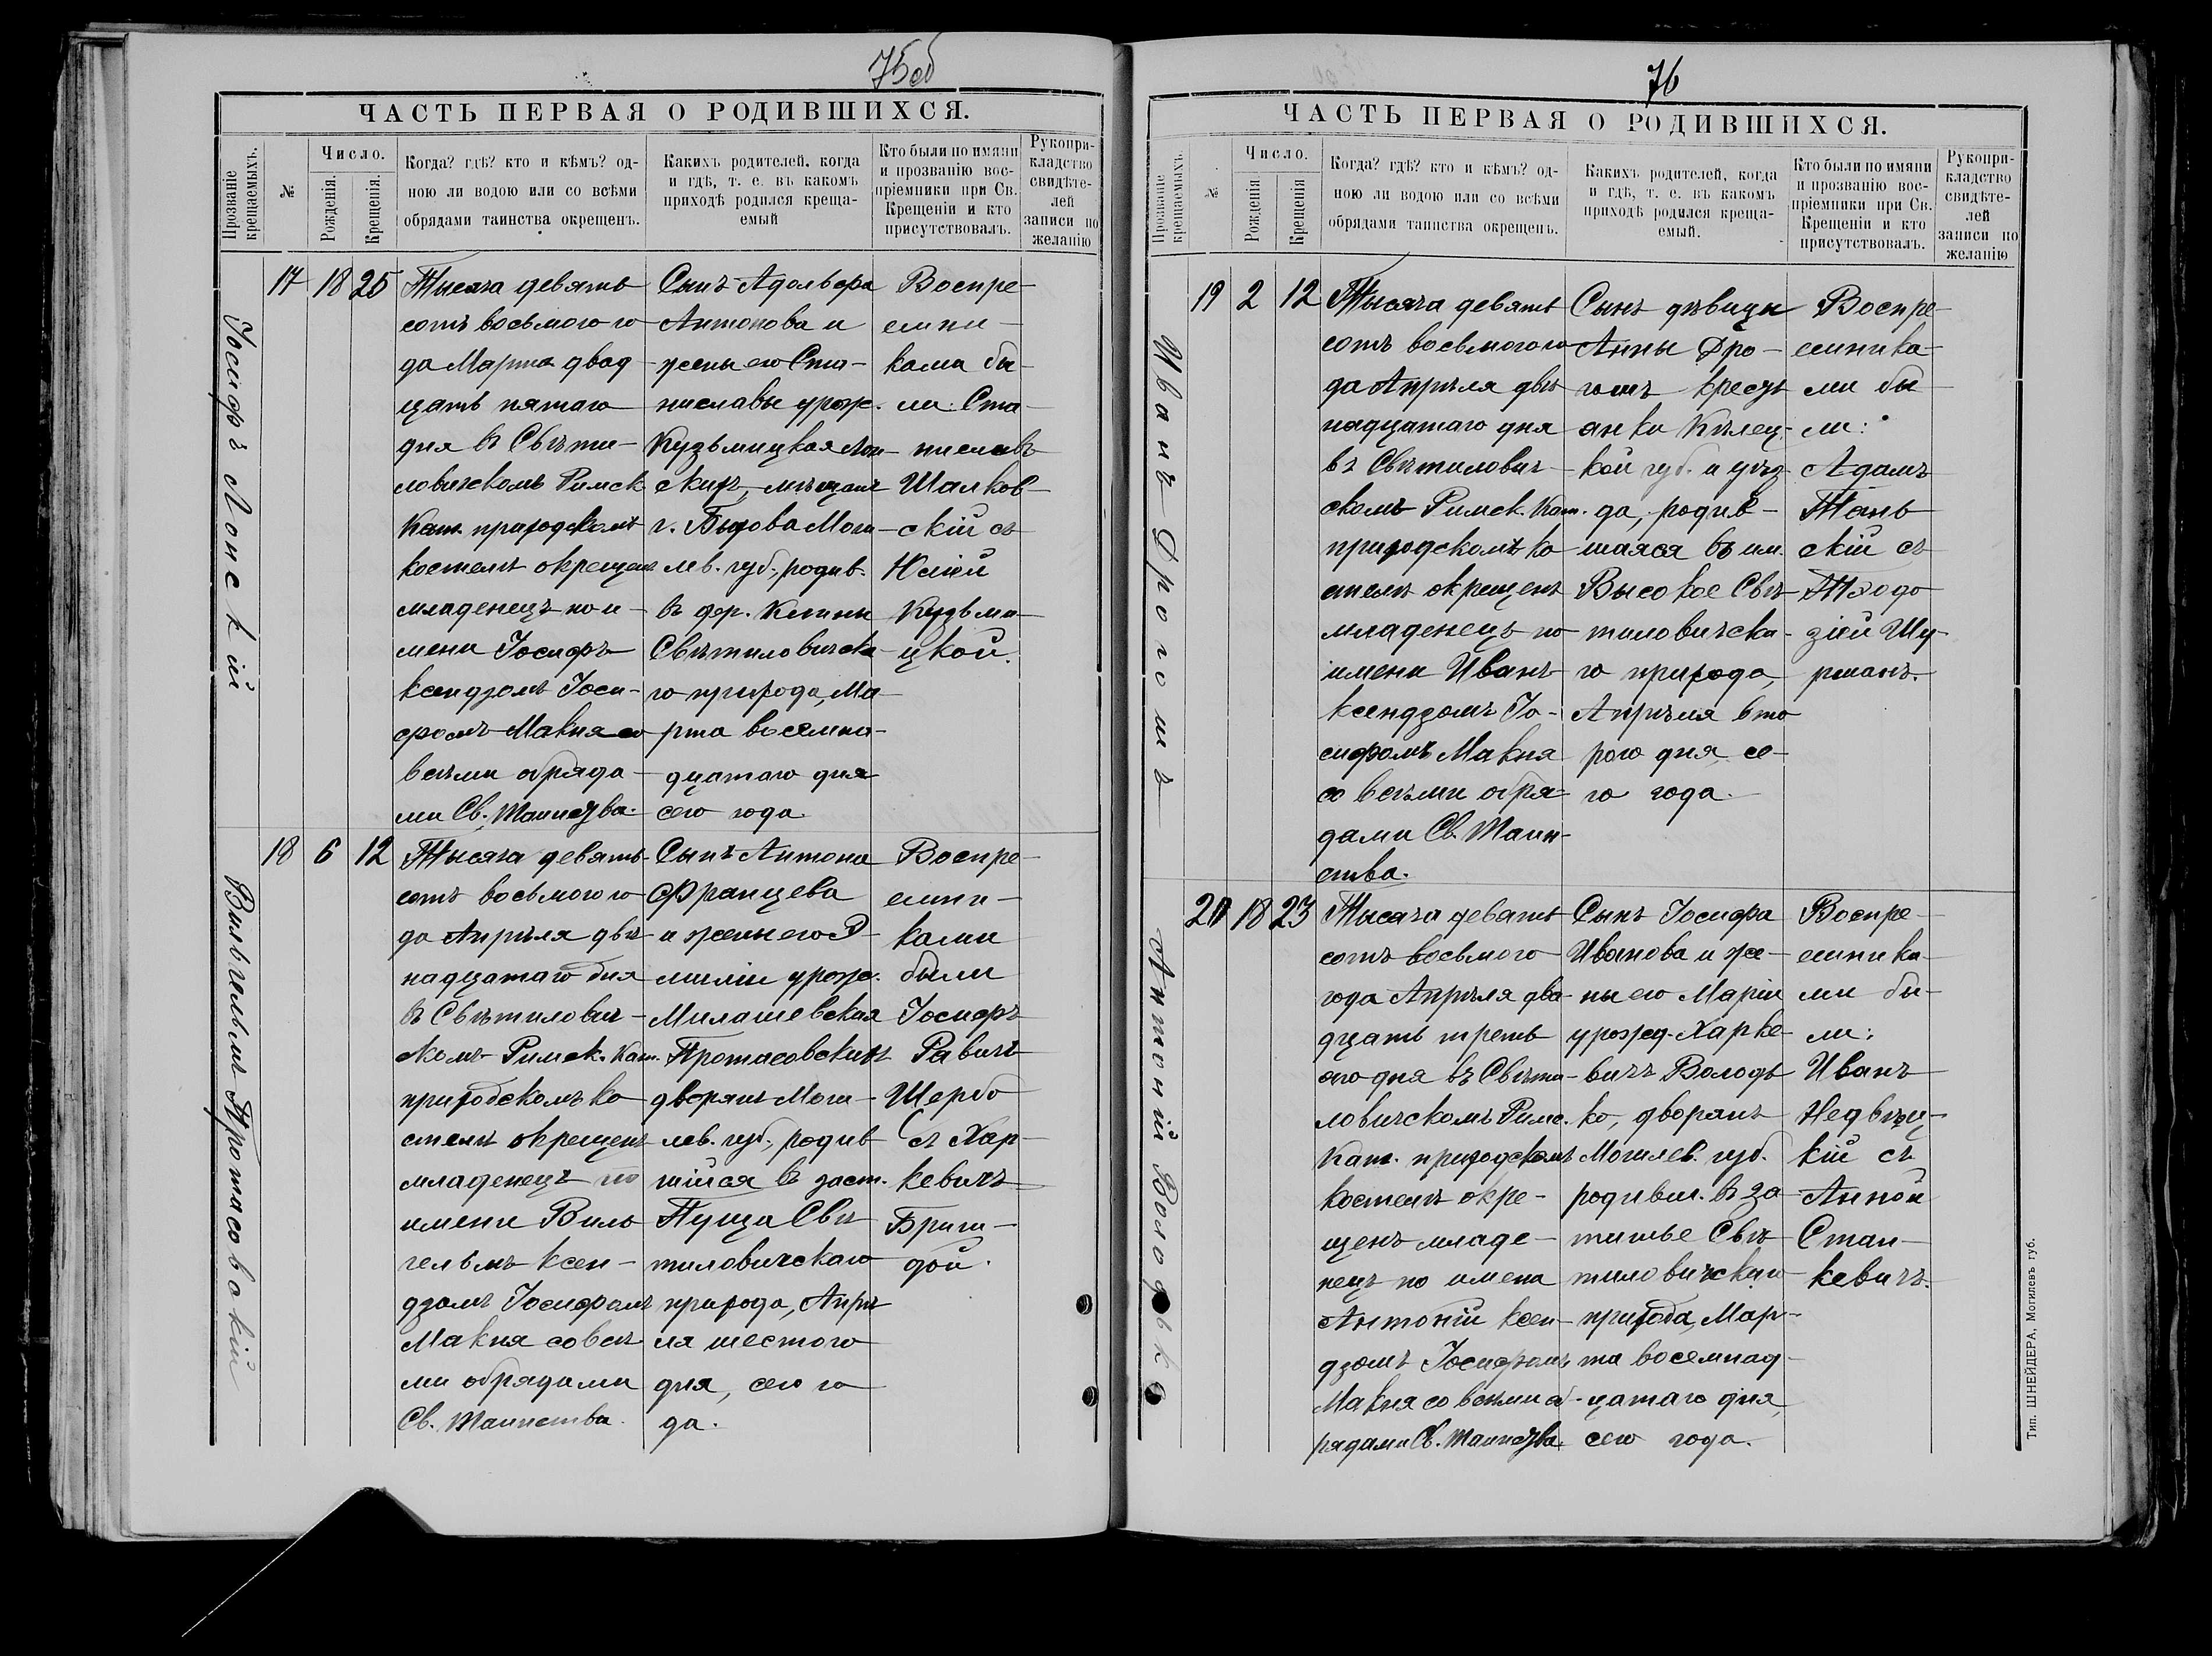 75об
ЧАСТЬ ПЕРВАЯ О РОДИВШИХСЯ.
Прозваніе крещаемыхъ.
№
Число.
Рожденія.
Крещенія.
Когда? гдѣ? кто и кѣмъ? од-
ною ли водою или со всѣми
обрядами таинства окрещенъ.
Какихъ родителей, когда
и гдѣ, т. е. въ какомъ
приходѣ родился креща-
емый
Кто были по имяни
и прозванію вос-
пріемники при Св.
Крещеніи и кто
присутствовалъ.
Рукопри-
кладство
свидѣте-
лей
записи по
желанію
Іосифъ Лонскій
17 18 25
Тысяча девять
сотъ восьмого го
да Марта двад
цать пятаго
дня въ Свѣти-
ловичскомъ Римск
Кат. приходскомъ
костелѣ окрещенъ
младенецъ по и-
мени Іосифъ
ксендзомъ Іоси-
фомъ Макня со
всѣми обряда-
ми Св. Таинства.
Сынъ Адольфа
Антонова и
жены его Ста-
ниславы урож.
Кузьмицкая Лон
скихъ, мѣщанъ
г. Быхова Моги-
лев. губ., родив.
въ дер. Клины
Свѣтиловичска-
го прихода, Ма-
рта восемна-
дцатаго дня
сего года.
Воспре-
емни-
ками бы-
ли: Ста-
ниславъ
Шалков-
скій съ
Юліей
Кузьми-
цкой.
Вильгельмъ Протасовскій
18 6 12
Тысяча девять
сотъ восьмого го
да Апрѣля двѣ
надцатаго дня
въ Свѣтилович-
скомъ Римск. Кат.
приходскомъ ко
стелѣ окрещенъ
младенецъ по
имени Виль
гельмъ ксен-
дзомъ Іосифомъ
Макня со всѣ
ми обрядами
Св. Таинства.
Сынъ Антона
Францева
и жены его Э-
миліи урож.
Милашевская
Протасовскихъ
дворянъ Моги-
лев. губ., родив
шійся въ заст.
Пуща Свѣ
тиловичскаго
прихода, Апрѣ
ля шестого
дня, сего го
да.
Воспре-
емни-
ками
были
Іосифъ
Равичъ
Щербо
съ Хар-
кевичъ
Бриги-
дой.
76
ЧАСТЬ ПЕРВАЯ О РОДИВШИХСЯ.
Прозваніе крещаемыхъ.
№
Число.
Рожденія
Крещенія
Когда? гдѣ? кто и кѣмъ? од-
ною ли водою или со всѣми
обрядами таинства окрещенъ.
Какихъ родителей, когда
и гдѣ, т. е. въ какомъ
приходѣ родился креща-
емый.
Кто были по имяни
и прозванію вос-
пріемники при Св.
Крещеніи и кто
присутствовалъ.
Рукопри-
кладство
свидѣте-
лей
записи по
желанію
Иванъ Дрогошъ
19 2 12
Тысяча девять
сотъ восьмого го
да Апрѣля двѣ
надцатаго дня
въ Свѣтилович-
скомъ Римск. Кат.
приходскомъ ко
стелѣ окрещенъ
младенецъ по
имени Иванъ
ксендзомъ Іо-
сифомъ Макня
со всѣми обря-
дами Св. Таин-
ства.
Сынъ дѣвицы
Анны Дро-
гошъ крестъ
анки Кѣлец-
кой губ. и уѣз-
да, родив-
шаяся въ им.
Высокое Свѣ-
тиловичска-
го прихода,
Апрѣля вто
рого дня се-
го года.
Воспре-
емника-
ми бы
ли:
Адамъ
скій съ
Теодо
зіей
20 18 23
Антоній Володько
Тысяча девять
сотъ восьмого
года Апрѣля два
дцать треть
яго дня въ Свѣти-
ловичскомъ Римс.
Кат. приходскомъ
костелѣ окре-
щенъ младе-
нецъ по имени
Антоній ксен-
дзомъ Іосифомъ
Макня со всѣми об-
рядами Св. Таинства.
Сынъ Іосифа
Иванова и же-
ны его Маріи
урожд. Харке-
вичъ Володь
ко, дворянъ
Могилев. губ.
родивш. въ за
тишье Свѣ
тиловичскаго
прихода, Мар-
та восемнад-
цатаго дня,
сего года.
Воспре-
емника-
ми бы-
ли:
Иванъ
Недвѣц-
кій съ
Анной
Стан-
кевичъ.
Тип. ШНЕЙДЕРА, Могилевъ губ.